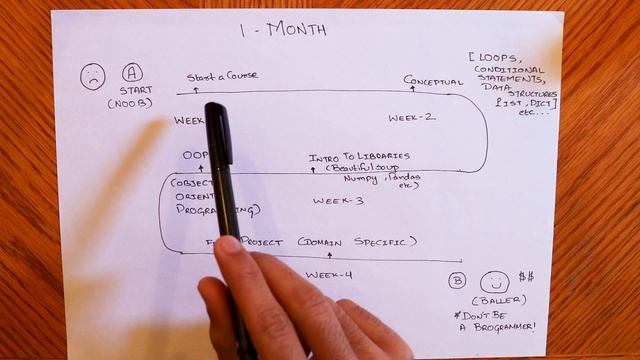 1 - MONTH
A
START
(NOOB)
Start a Course
CONCEPTUAL
[LOOPS,
CONDITIONAL
STATEMENTS,
DATA
STRUCTURES
LIST, DICT]
etc...
WEEK
WEEK-2
OOP
INTRO TO LIBRARIES
(Beautifulsoup
Numpy, Pandas
etc)
(OBJEC
ORIEN
PROGRAMMING)
WEEK-3
PROJECT (DOMAIN SPECIFIC)
WEEK-4
B
$$
(BALLER)
*DON'T BE
A BROGRAMMER!